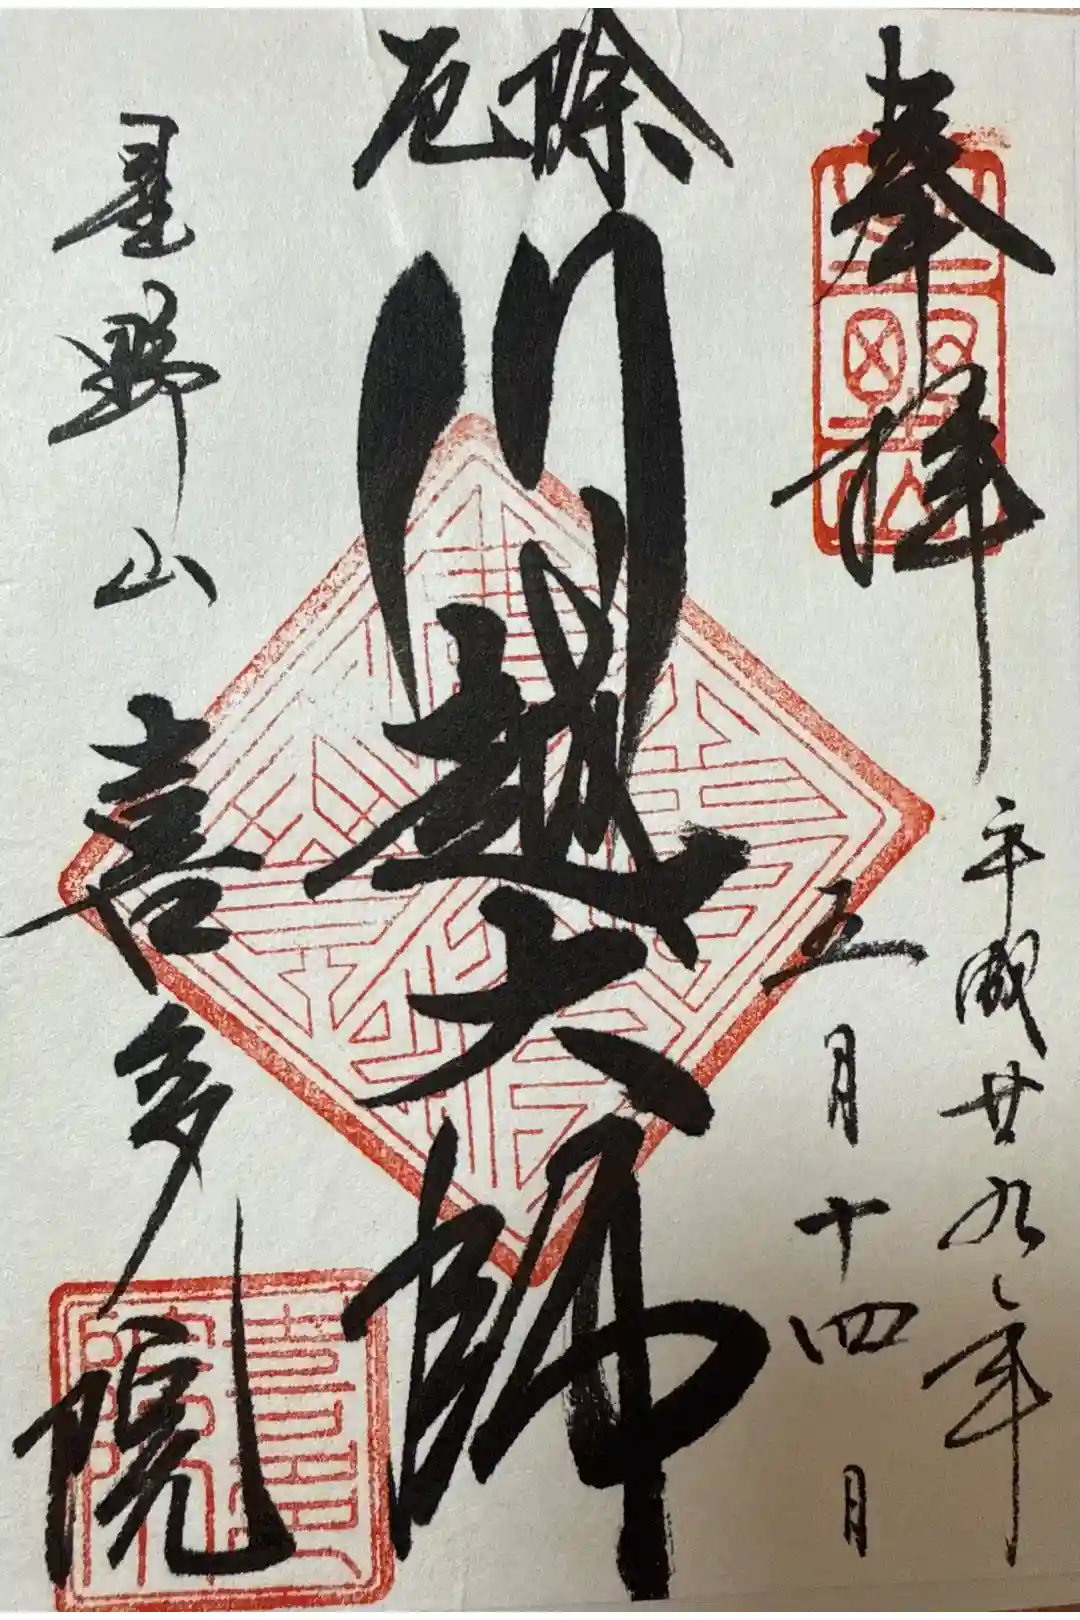 奉拝
平成廿九年
五月十四日
星野山
厄除
川越大師
星野山
喜多院
喜多院